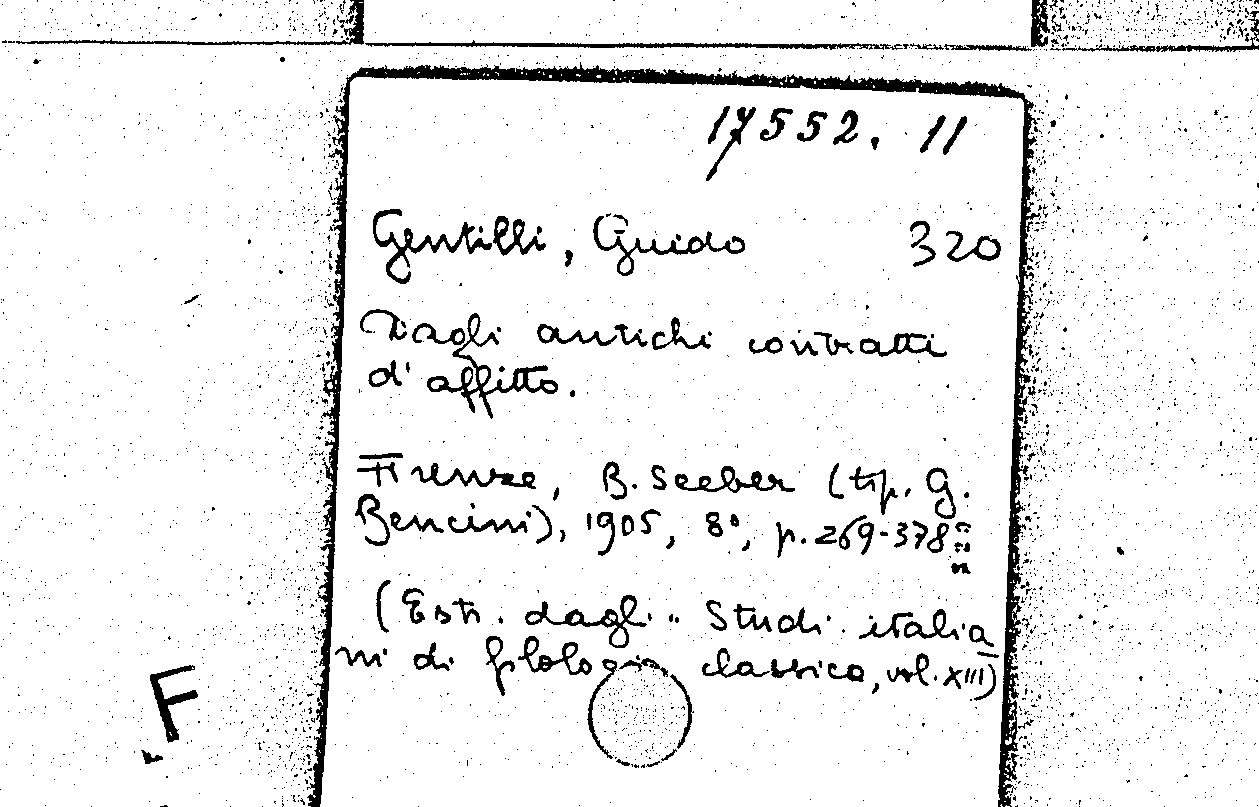 17552. 11
Gentilli, Guido 320
Dagli antichi contratti
d'affitto.
Firenze, B. Seeber (tip. G.
Bencini), 1905, 8°, p. 269-378
(Estr. dagli "Studi italia
ni di filologia classica, vol. XIII)
F